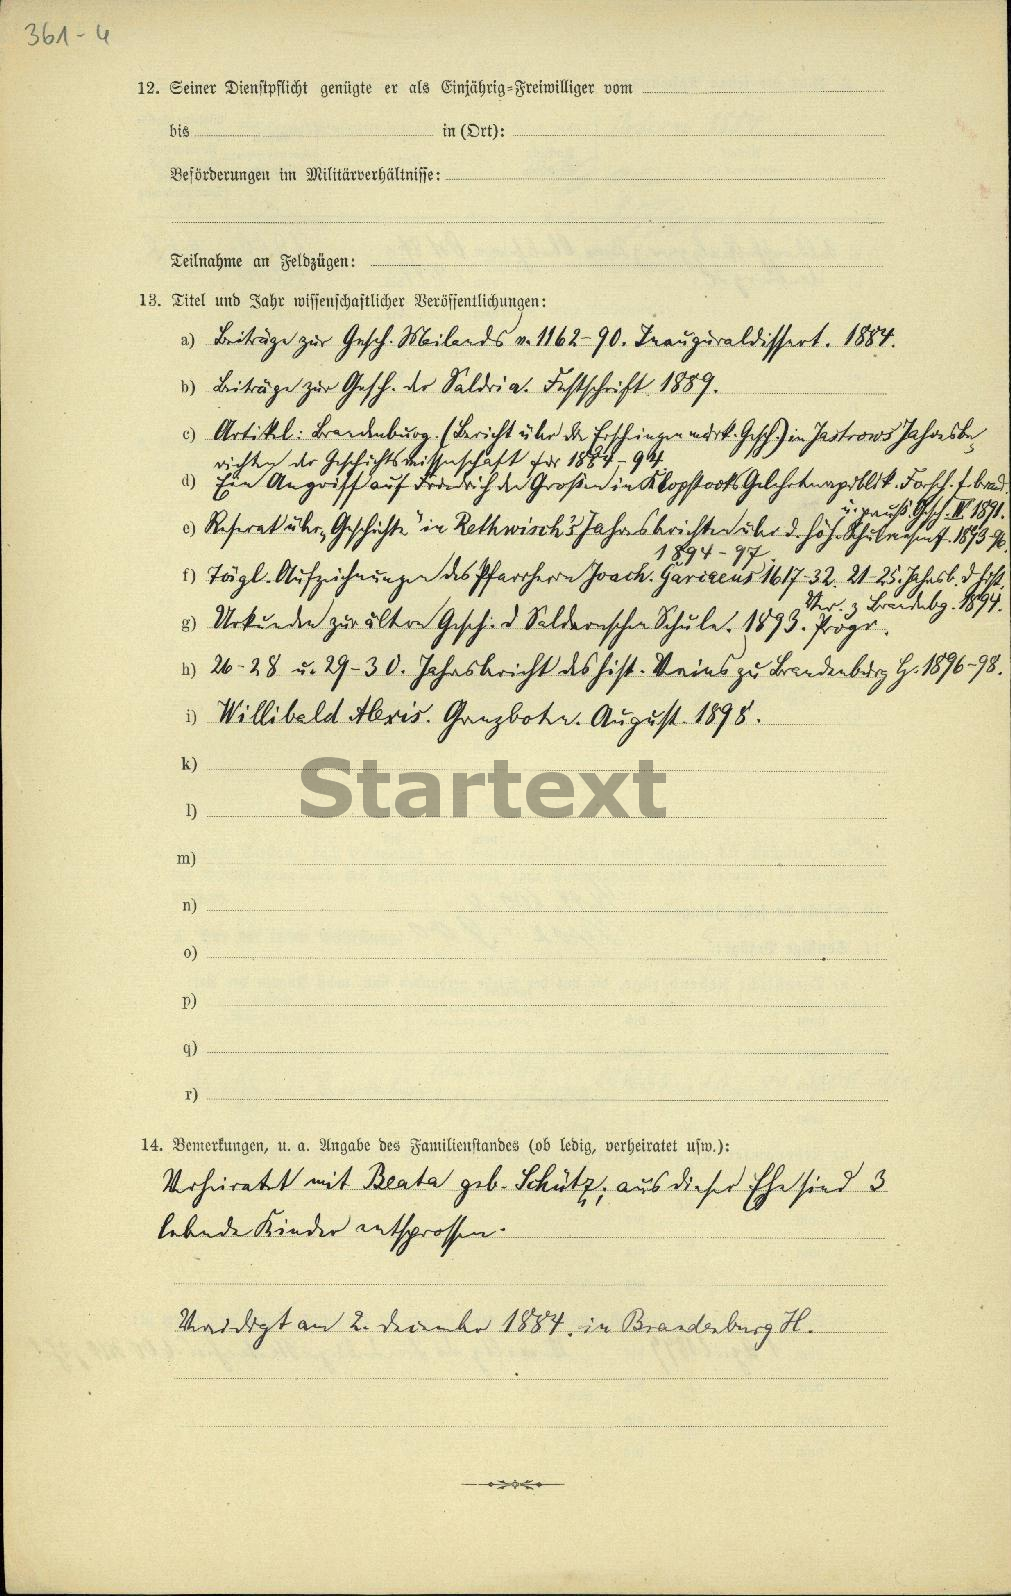 361-4
12. Seiner Dienstpflicht genügte er als Einjährig-Freiwilliger vom
bis in (Ort):
Beförderungen im Militärverhältnisse:
Teilnahme an Feldzügen:
13. Titel und Jahr wissenschaftlicher Veröffentlichungen:
a) Beiträge zur Gesch. Mailands v. 1162-90. Inauguraldissert. 1884.
b) Beiträge zur Gesch. der Saldria. Festschrift 1889.
c) Artikel: Brandenburg. (Bericht über die Erscheinungen märk. Gesch.) in Jastrows Jahresbe-
richten der Geschichtswissenschaft für 1884-94
d) Ein Angriff auf Friedrich den Großen in Klopstocks Gelehrtenrepublik. Forsch. f. brand.
u. preuß. Gesch. IV 1891.
e) Referat über „Geschichte" in Rethwisch's Jahresberichten über d. höh. Schulwesen f. 1893-96.
1894-97.
f) Tägl. Aufzeichnungen des Pfarrherrn Joach. Garcaeus 1617-32. 21-25. Jahresb. d. hist.
Ver. z. Brandebg. 1894.
g) Urkunden zur ältern Gesch. d Saldernschen Schule. 1893. Progr.
h) 26-28 u. 29-30. Jahresbericht des hist. Vereins zu Brandenburg H. 1896-98.
i) Willibald Alexis. Grenzboten. August. 1898.
k)
Startext
l)
m)
n)
o)
p)
q)
r)
14. Bemerkungen, u. a. Angabe des Familienstandes (ob ledig, verheiratet usw.):
Verheiratet mit Beata geb. Schütz; aus dieser Ehe sind 3
lebende Kinder entsprossen.
Vereidigt am 2. Dezember 1884. in Brandenburg H.